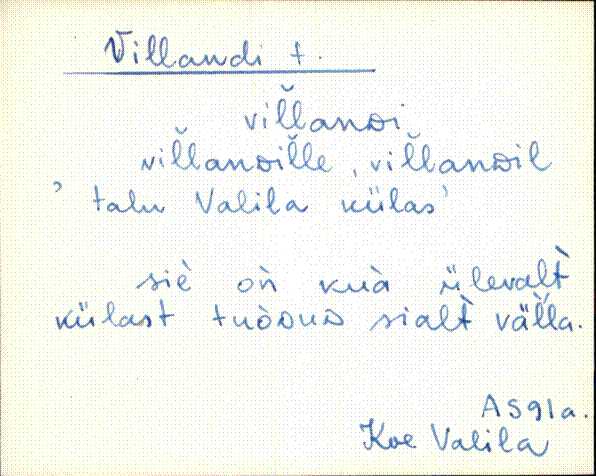 Villandi t.
vil̆l̆anᴅi
vil̆l̆anᴅil̆l̆e, vil̆l̆anᴅil
'talu Valila külas'
siè on̆ kuà ülevalt̀
külast tuòᴅuᴅ sialt̀ väl̆l̆a.
AS91a.
Koe Valila